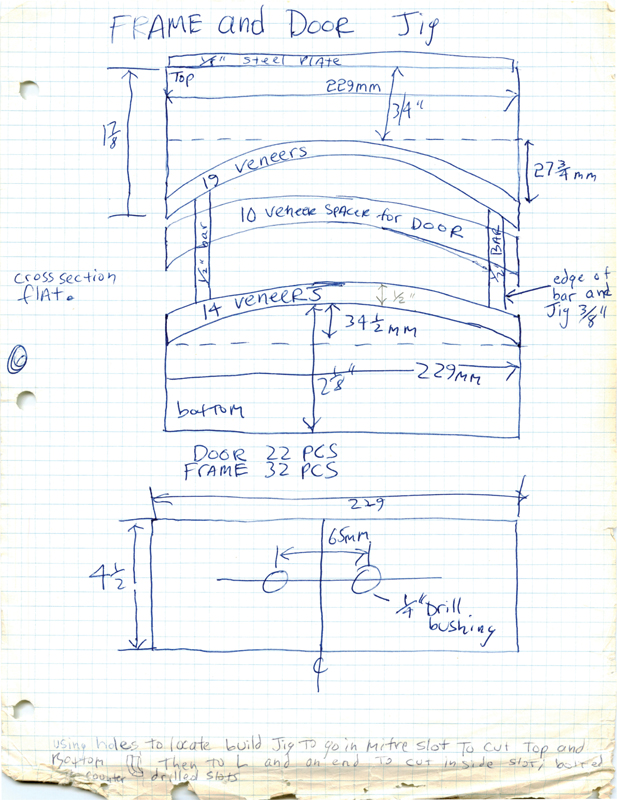 FRAME and DOOR Jig
1/8" STEEL PLATE
Top
229mm
3/4"
1 7/8
19 veneers
27 3/4 mm
10 veneer SPACER for DOOR
1/2" bar
1/2" BAR
cross section
flat.
edge of
bar and
Jig 3/8"
14 veneers
1/2"
34 1/2 mm
2 1/8"
229mm
bottom
DOOR 22 PCS
FRAME 32 PCS
229
65mm
4 1/2
1/4" Drill
bushing
using holes to locate build Jig To go in Mitre slot To cut Top and
Bottom Then to L and on end To cut inside slot,
counter drilled slots